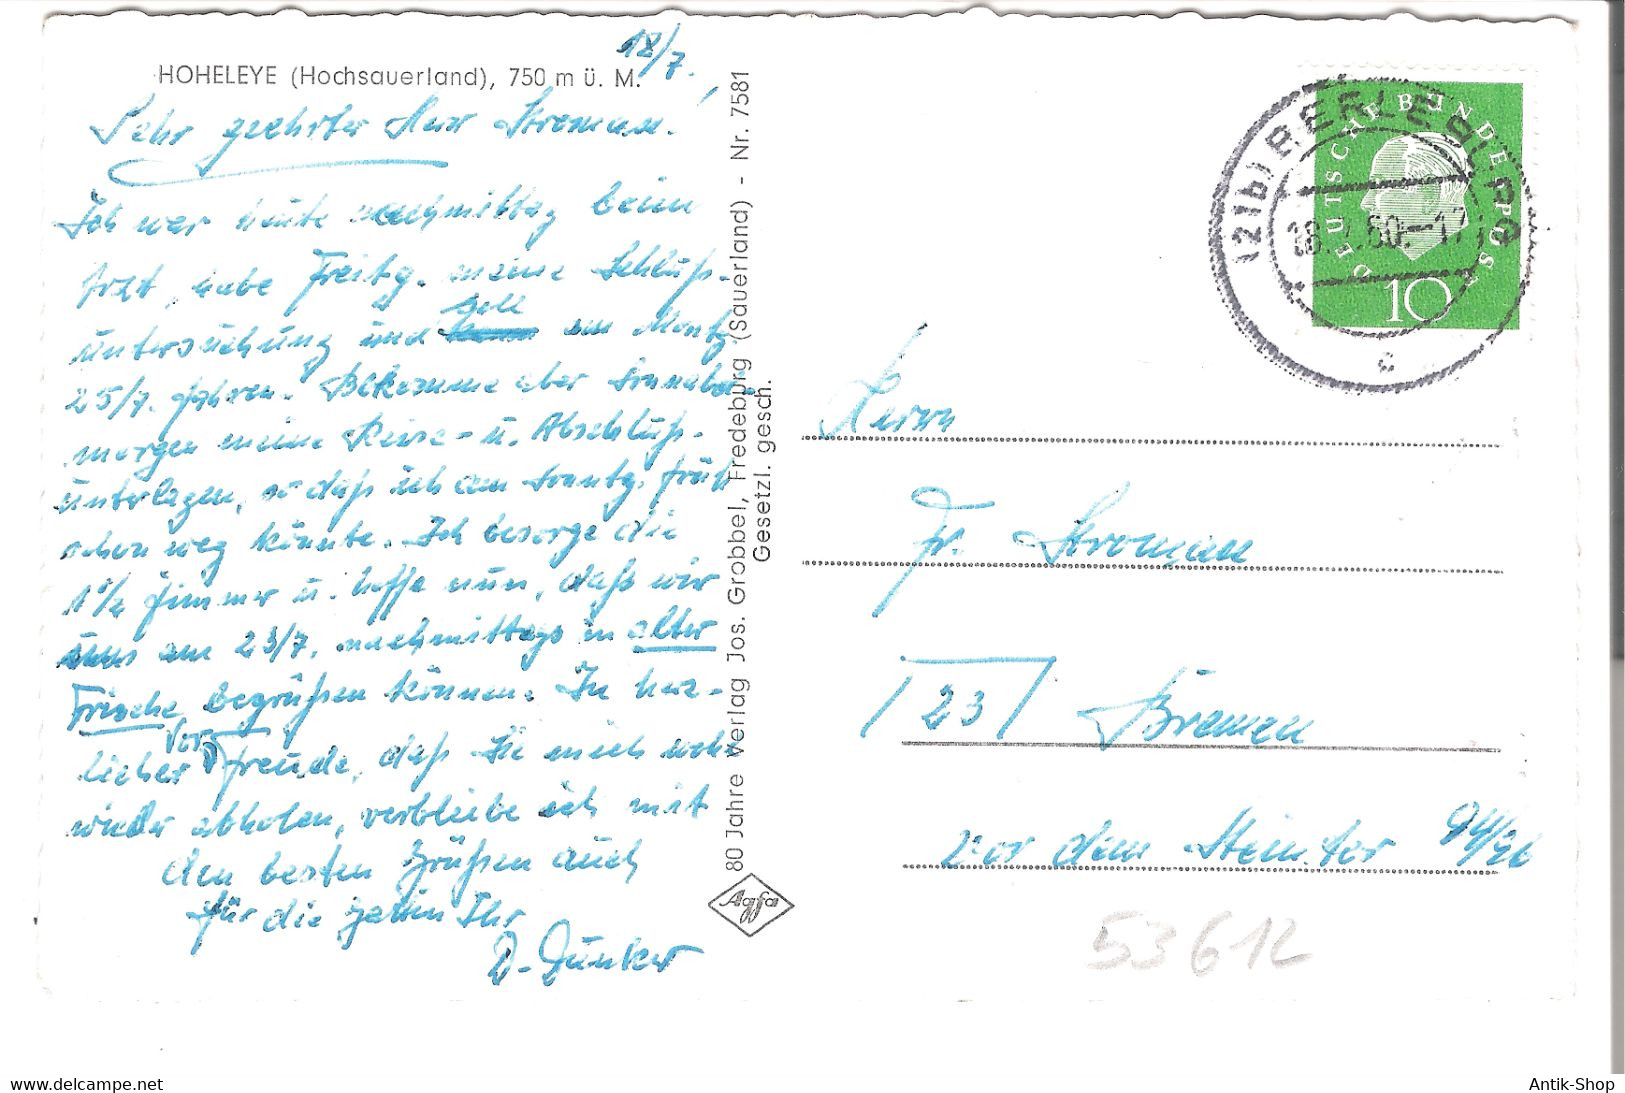 18/7.
HOHELEYE (Hochsauerland), 750 m ü. M.
Sehr geehrter Herr Stroman!
Ich war heute nachmittag beim
Arzt, habe Freitg. meine Schluß-
untersuchung und soll am Montg.
25/7. fahren. Bekomme aber Sonnabend
morgen meine Reise- u. Abschluß-
unterlagen, so daß ich am Sonntg. früh
schon weg könnte. Ich besorge die
1½ Zimmer u. hoffe nun, daß wir
uns am 23/7. nachmittags in alter
Frische begrüßen können. In herz-
licher Vorfreude, daß Sie mich wohl
wieder abholen, verbleibe ich mit
den besten Grüßen auch
für die Gattin Ihr
D. Dünker
80 Jahre Verlag Jos. Grobbel, Fredeburg (Sauerland) - Nr. 7581
Gesetzl. gesch.
Agfa
DEUTSCHE BUNDESPOST
10
(21b) BERLEBURG
18.7.60.-17
c
Herrn
Fr. Stroman
23 Bremen
vor dem Steintor 94/96
53612
www.delcampe.net
Antik-Shop